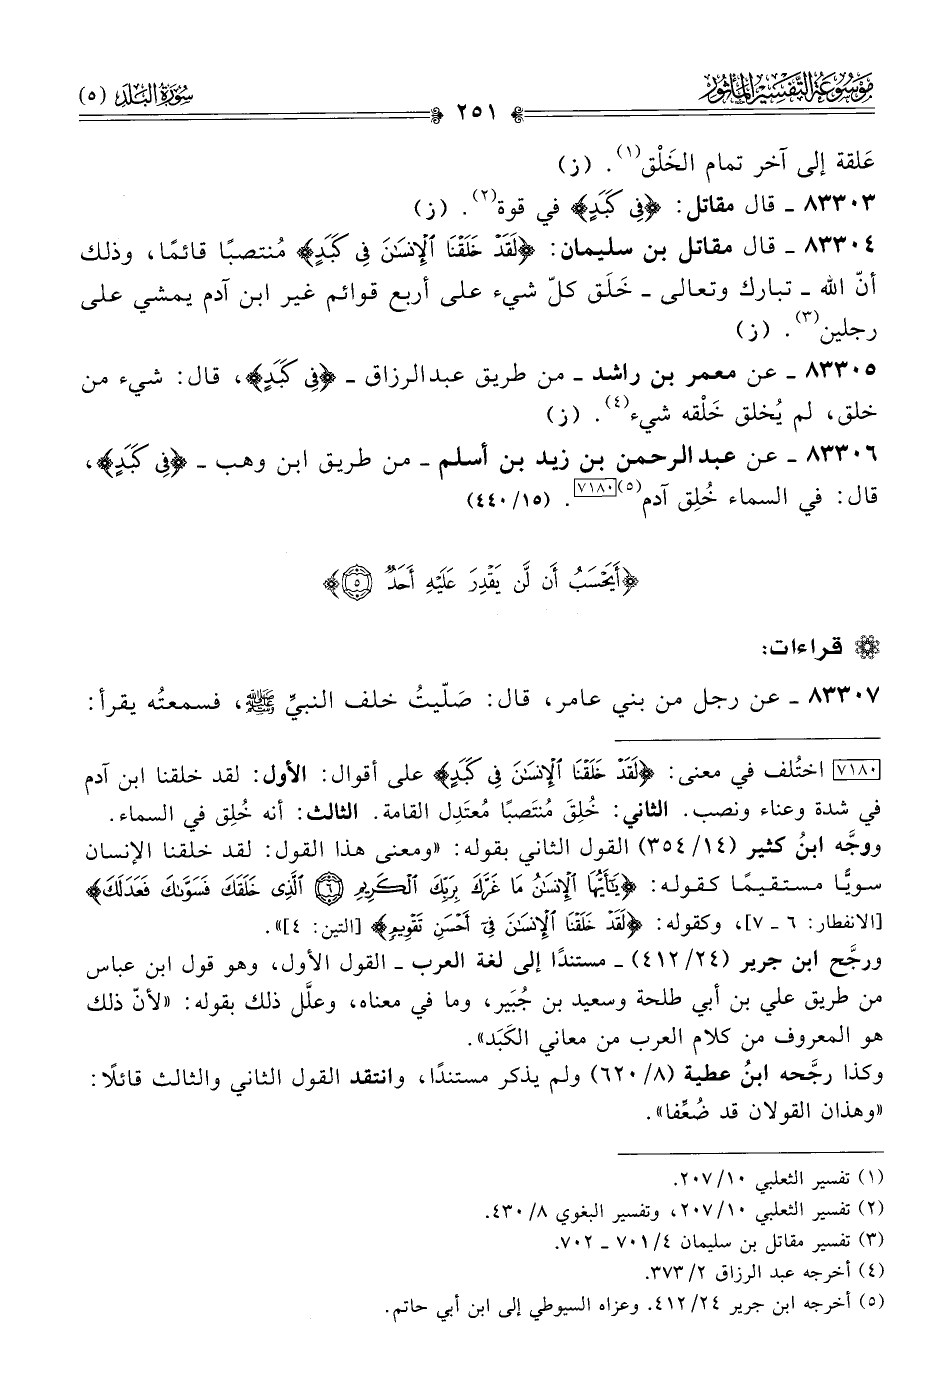 مَوْسُوعَة التَّفْسِير المَأْثُور
٢٥١
سُورَةُ البَلَد (٥)
عَلقة إلى آخر تمام الخَلْق(١). (ز)
٨٣٣٠٣ ـ قال مقاتل: ﴿فِي كَبَدٍ﴾ في قوة(٢). (ز)
٨٣٣٠٤ ـ قال مقاتل بن سليمان: ﴿لَقَدْ خَلَقْنَا ٱلْإِنسَـٰنَ فِي كَبَدٍ﴾ مُنتصبًا قائمًا، وذلك
أنّ الله ـ تبارك وتعالى ـ خَلَق كلّ شيء على أربع قوائم غير ابن آدم يمشي على
رجلين(٣). (ز)
٨٣٣٠٥ ـ عن معمر بن راشد ـ من طريق عبدالرزاق ـ ﴿فِي كَبَدٍ﴾، قال: شيء من
خلق، لم يُخلق خَلْقه شيء(٤). (ز)
٨٣٣٠٦ ـ عن عبدالرحمن بن زيد بن أسلم ـ من طريق ابن وهب ـ ﴿فِي كَبَدٍ﴾،
قال: في السماء خُلِق آدم(٥)[٧١٨٠]. (١٥/٤٤٠)
﴿أَيَحْسَبُ أَن لَّن يَقْدِرَ عَلَيْهِ أَحَدٌ ۝٥﴾
قراءات:
٨٣٣٠٧ ـ عن رجل من بني عامر، قال: صَلّيتُ خلف النبيِّ ﷺ، فسمعتُه يقرأ:
[٧١٨٠] اختُلف في معنى: ﴿لَقَدْ خَلَقْنَا ٱلْإِنسَـٰنَ فِي كَبَدٍ﴾ على أقوال: الأول: لقد خلقنا ابن آدم
في شدة وعناء ونصب. الثاني: خُلِقَ مُنتَصبًا مُعتَدِل القامة. الثالث: أنه خُلِق في السماء.
ووجَّه ابنُ كثير (١٤/٣٥٤) القول الثاني بقوله: «ومعنى هذا القول: لقد خلقنا الإنسان
سويًّا مستقيمًا كقوله: ﴿يَـٰٓأَيُّهَا ٱلْإِنسَـٰنُ مَا غَرَّكَ بِرَبِّكَ ٱلْكَرِيمِ ۝٦ ٱلَّذِى خَلَقَكَ فَسَوَّىٰكَ فَعَدَلَكَ﴾
[الانفطار: ٦ ـ ٧]، وكقوله: ﴿لَقَدْ خَلَقْنَا ٱلْإِنسَـٰنَ فِىٓ أَحْسَنِ تَقْوِيمٍ﴾ [التين: ٤]».
ورجَّح ابن جرير (٢٤/٤١٢) ـ مستندًا إلى لغة العرب ـ القول الأول، وهو قول ابن عباس
من طريق علي بن أبي طلحة وسعيد بن جُبَير، وما في معناه، وعلَّل ذلك بقوله: «لأنّ ذلك
هو المعروف من كلام العرب من معاني الكَبَد».
وكذا رجَّحه ابنُ عطية (٨/٦٢٠) ولم يذكر مستندًا، وانتقد القول الثاني والثالث قائلًا:
«وهذان القولان قد ضُعِّفا».
(١) تفسير الثعلبي ١٠/٢٠٧.
(٢) تفسير الثعلبي ١٠/٢٠٧، وتفسير البغوي ٨/٤٣٠.
(٣) تفسير مقاتل بن سليمان ٤/٧٠١ ـ ٧٠٢.
(٤) أخرجه عبد الرزاق ٢/٣٧٣.
(٥) أخرجه ابن جرير ٢٤/٤١٢. وعزاه السيوطي إلى ابن أبي حاتم.